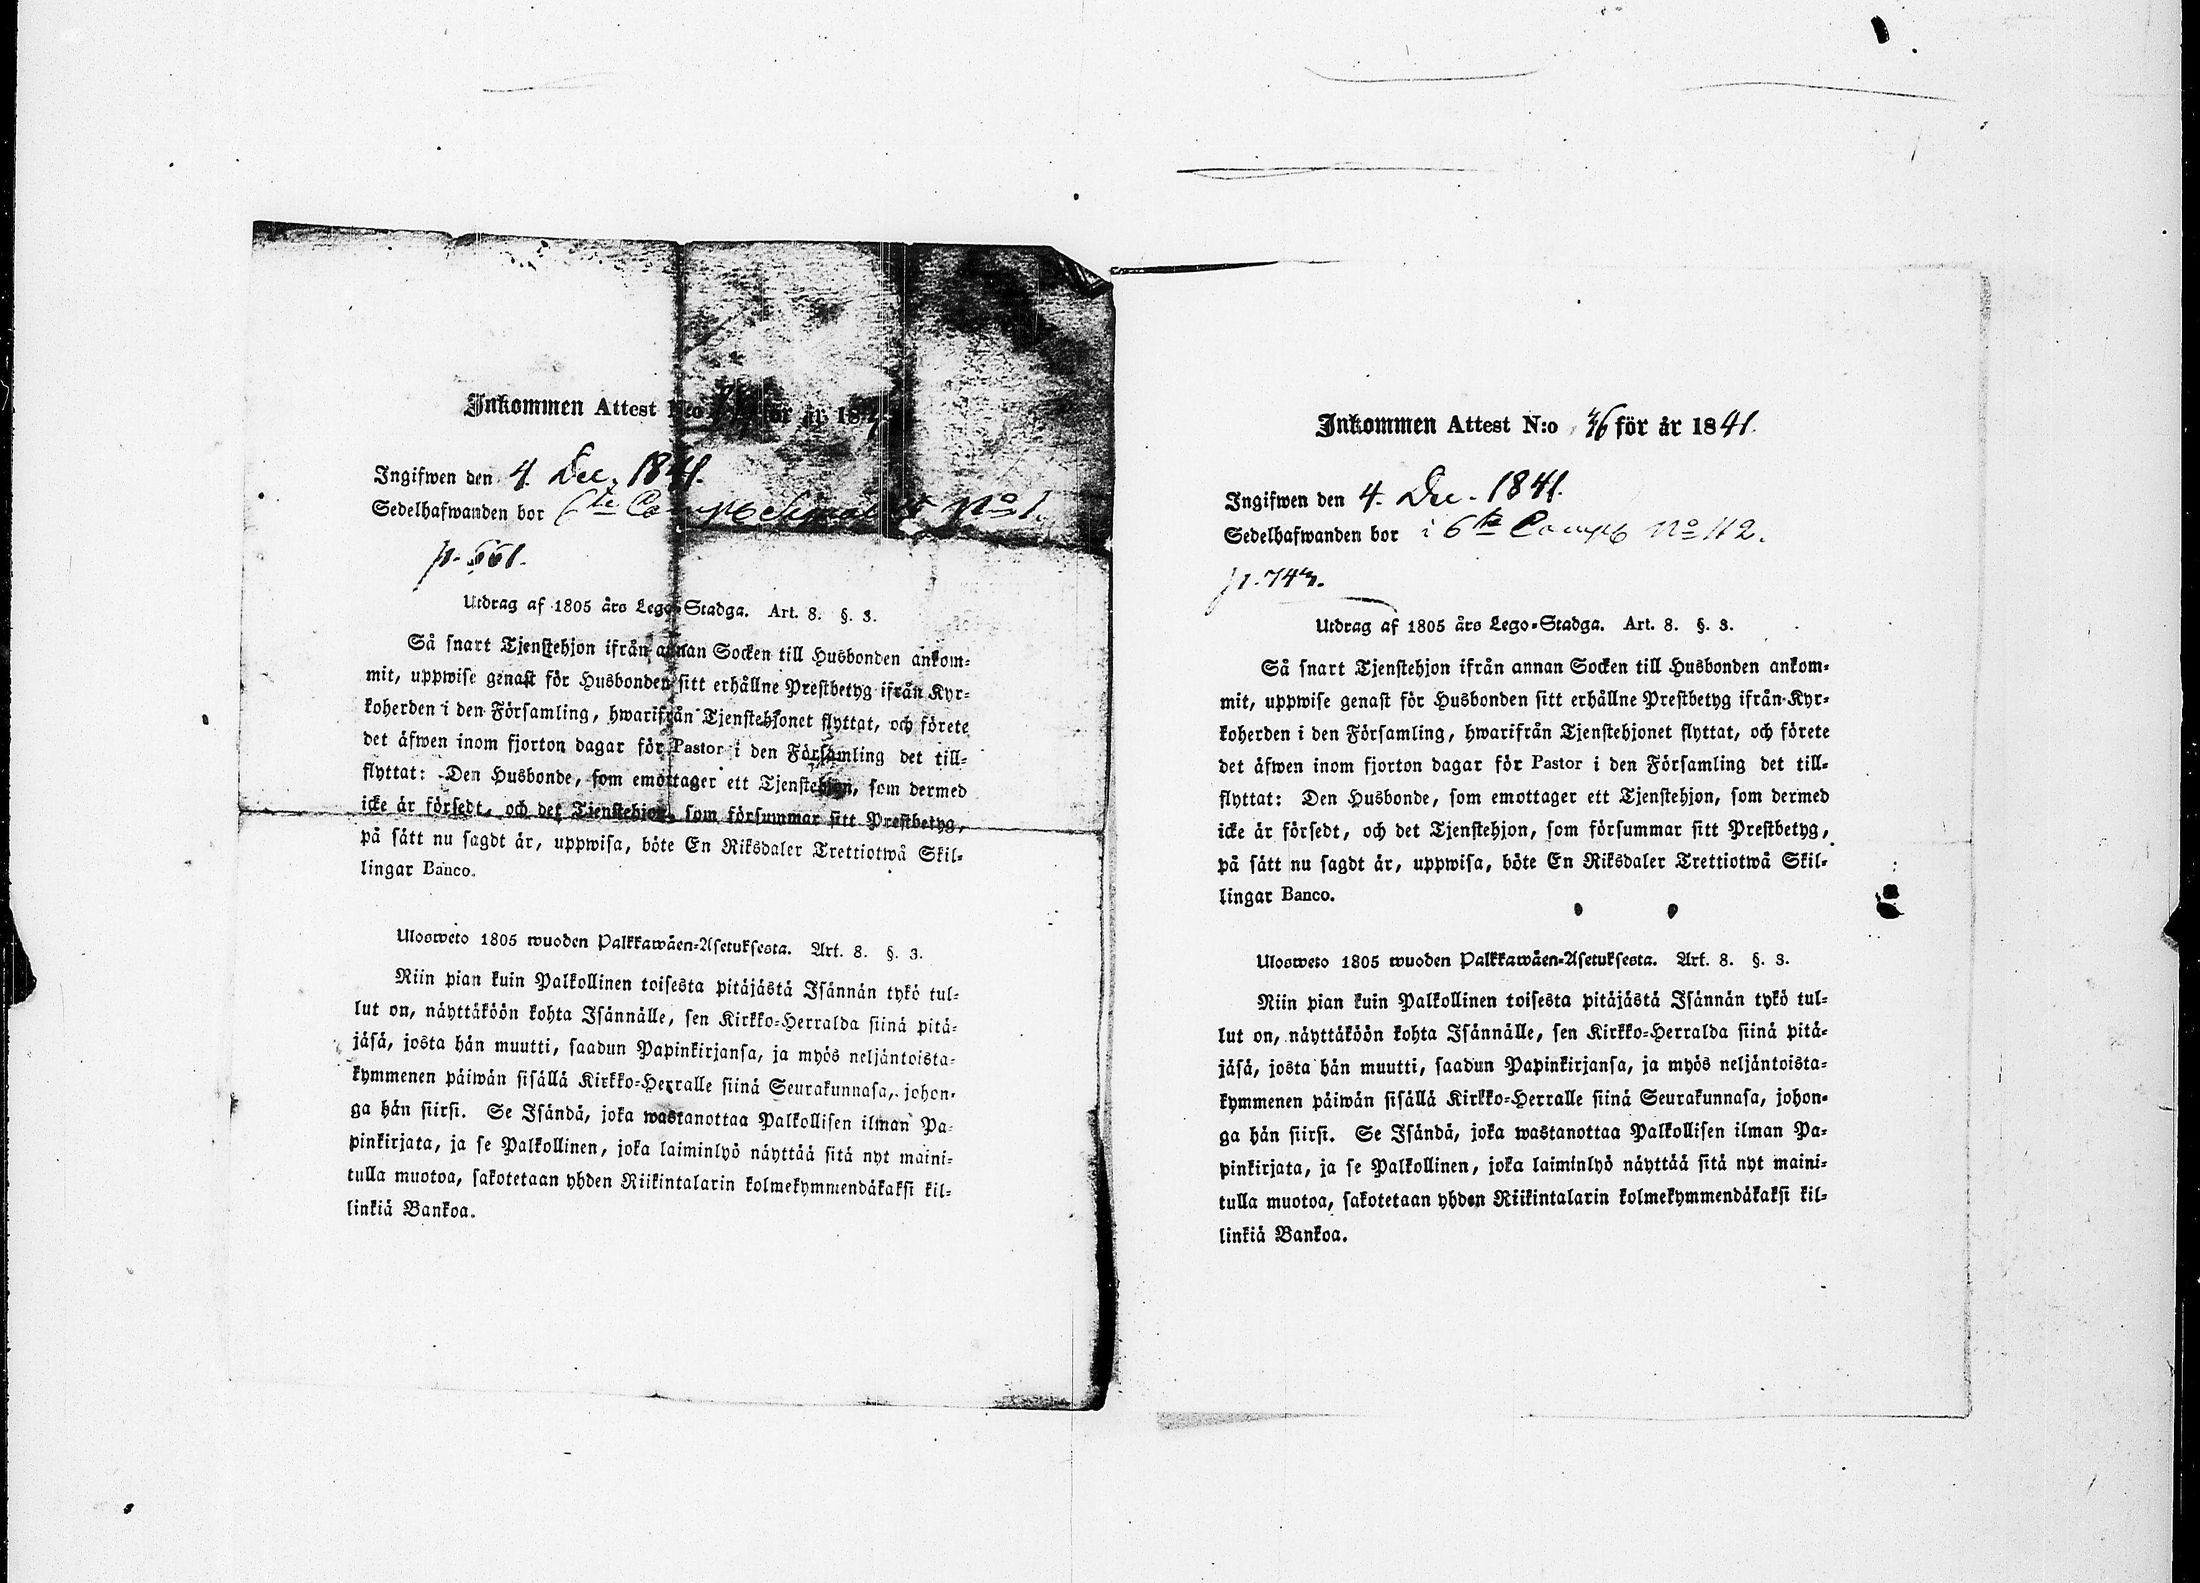 Inkommen Attest N:o för år 184
Ingifwen den 4. Dec. 1841.
Sedelhafwanden bor 6te Comp No 1.
p. 661.
Utdrag af 1805 års Lego-Stadga. Art. 8. §. 3.
Så snart Tjenstehjon ifrån annan Socken till Husbonden ankom-
mit, uppwise genast för Husbonden sitt erhållne Prestbetyg ifrån Kyr-
koherden i den Församling, hwarifrån Tjenstehjonet flyttat, och förete
det äfwen inom fjorton dagar för Pastor i den Församling det till-
flyttat: Den Husbonde, som emottager ett Tjenstehjon, som dermed
icke är försedt, och det Tjenstehjon, som försummar sitt Prestbetyg,
på sätt nu sagdt är, uppwisa, böte En Riksdaler Trettiotwå Skil-
lingar Banco.
Ulosweto 1805 wuoden Palkkawäen-Asetuksesta. Art. 8. §. 3.
Niin pian kuin Palkollinen toisesta pitäjästä Isännän tykö tul-
lut on, näyttäköön kohta Isännälle, sen Kirkko-Herralda siinä pitä-
jäsä, josta hän muutti, saadun Papinkirjansa, ja myös neljäntoista-
kymmenen päiwän sisällä Kirkko-Herralle siinä Seurakunnasa, johon-
ga hän siirsi. Se Isändä, joka wastanottaa Palkollisen ilman Pa-
pinkirjata, ja se Palkollinen, joka laiminlyö näyttää sitä nyt maini-
tulla muotoa, sakotetaan yhden Riikintalarin kolmekymmendäkaksi kil-
linkiä Bankoa.
Inkommen Attest N:o 46 för år 1841.
Ingifwen den 4. Dec. 1841.
Sedelhafwanden bor i 6te Comp No 112.
p. 743.
Utdrag af 1805 års Lego-Stadga. Art. 8. §. 3.
Så snart Tjenstehjon ifrån annan Socken till Husbonden ankom-
mit, uppwise genast för Husbonden sitt erhållne Prestbetyg ifrån Kyr-
koherden i den Församling, hwarifrån Tjenstehjonet flyttat, och förete
det äfwen inom fjorton dagar för Pastor i den Församling det till-
flyttat: Den Husbonde, som emottager ett Tjenstehjon, som dermed
icke är försedt, och det Tjenstehjon, som försummar sitt Prestbetyg,
på sätt nu sagdt är, uppwisa, böte En Riksdaler Trettiotwå Skil-
lingar Banco.
Ulosweto 1805 wuoden Palkkawäen-Asetuksesta. Art. 8. §. 3.
Niin pian kuin Palkollinen toisesta pitäjästä Isännän tykö tul-
lut on, näyttäköön kohta Isännälle, sen Kirkko-Herralda siinä pitä-
jäsä, josta hän muutti, saadun Papinkirjansa, ja myös neljäntoista-
kymmenen päiwän sisällä Kirkko-Herralle siinä Seurakunnasa, johon-
ga hän siirsi. Se Isändä, joka wastanottaa Palkollisen ilman Pa-
pinkirjata, ja se Palkollinen, joka laiminlyö näyttää sitä nyt maini-
tulla muotoa, sakotetaan yhden Riikintalarin kolmekymmendäkaksi kil-
linkiä Bankoa.